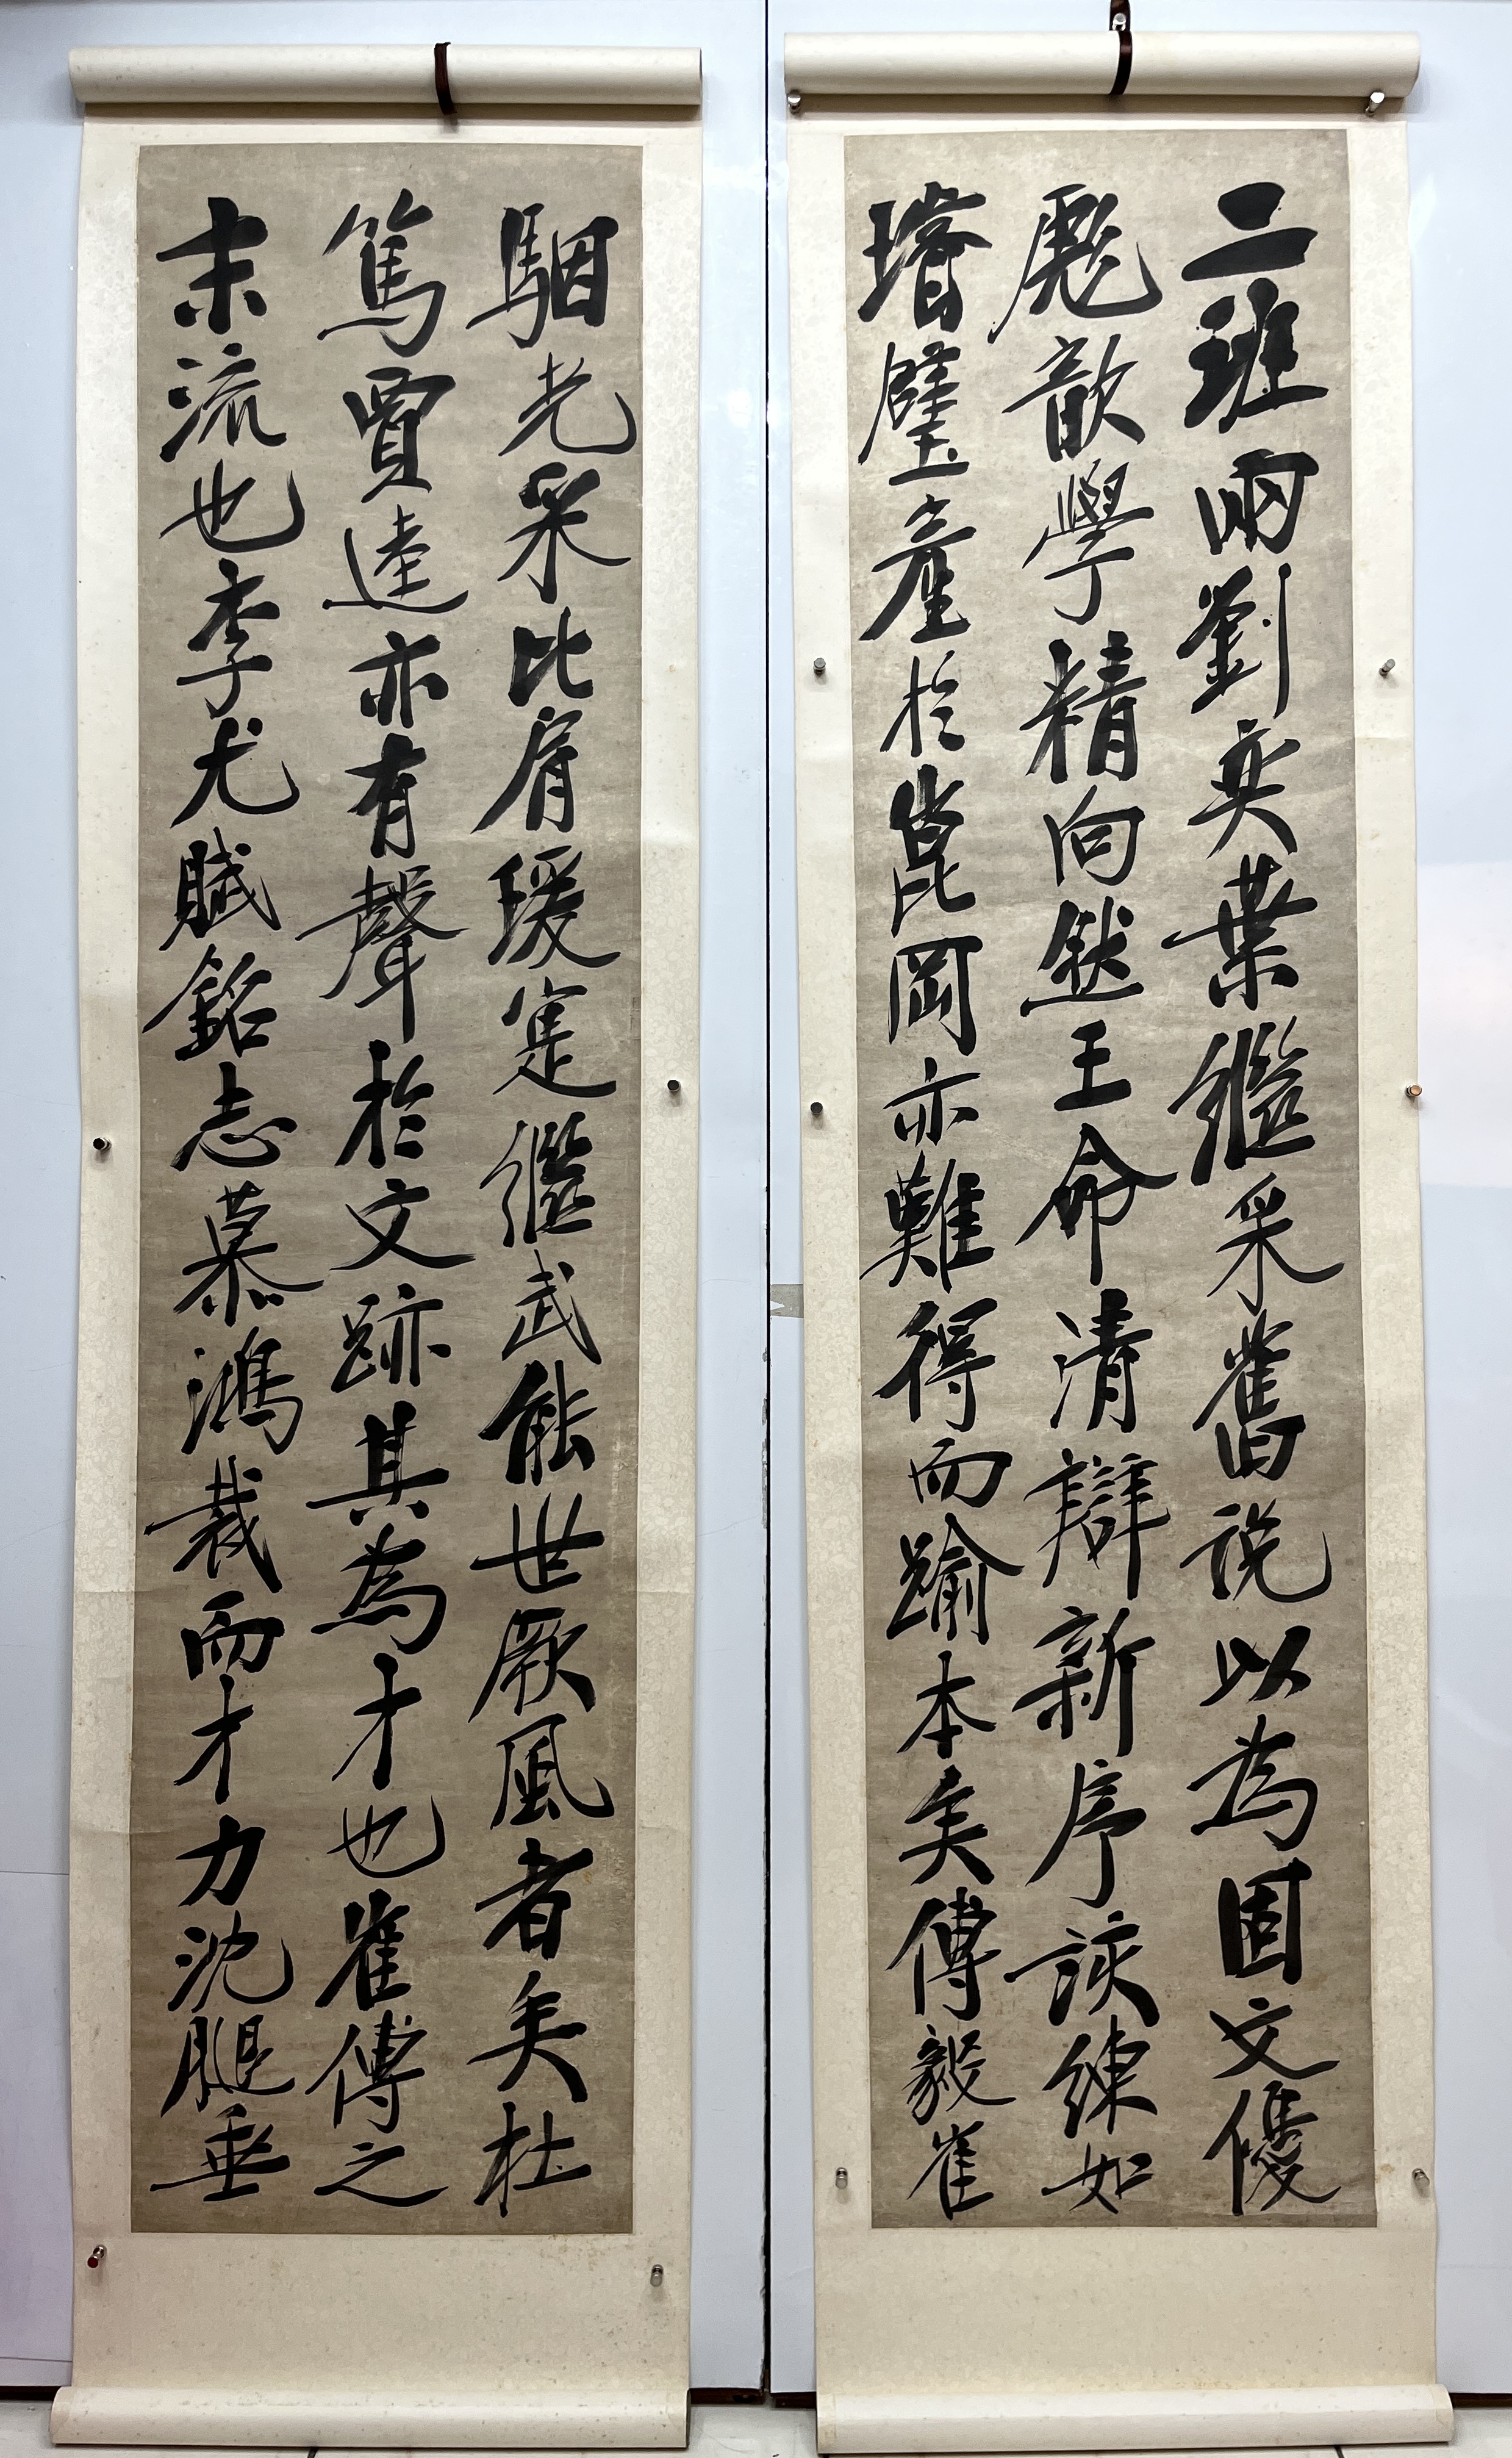 二班兩劉奕葉繼采舊說以為固文優
彪歆學精向然王命清辯新序該練如
璿璧產於崑岡亦難得而踰本矣傅毅崔
駰光采比肩瑗寔繼武能世厥風者矣杜
篤賈逵亦有聲於文跡其為才也崔傅之
末流也李尤賦銘志慕鴻裁而才力沈膇垂